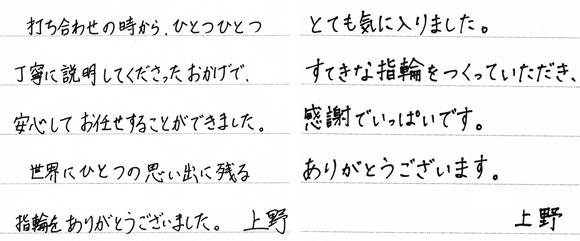 打ち合わせの時から、ひとつひとつ
丁寧に説明してくださったおかげで、
安心してお任せすることができました。
世界にひとつの思い出に残る
指輪をありがとうございました。 上野
とても気に入りました。
すてきな指輪をつくっていただき、
感謝でいっぱいです。
ありがとうございます。
上野